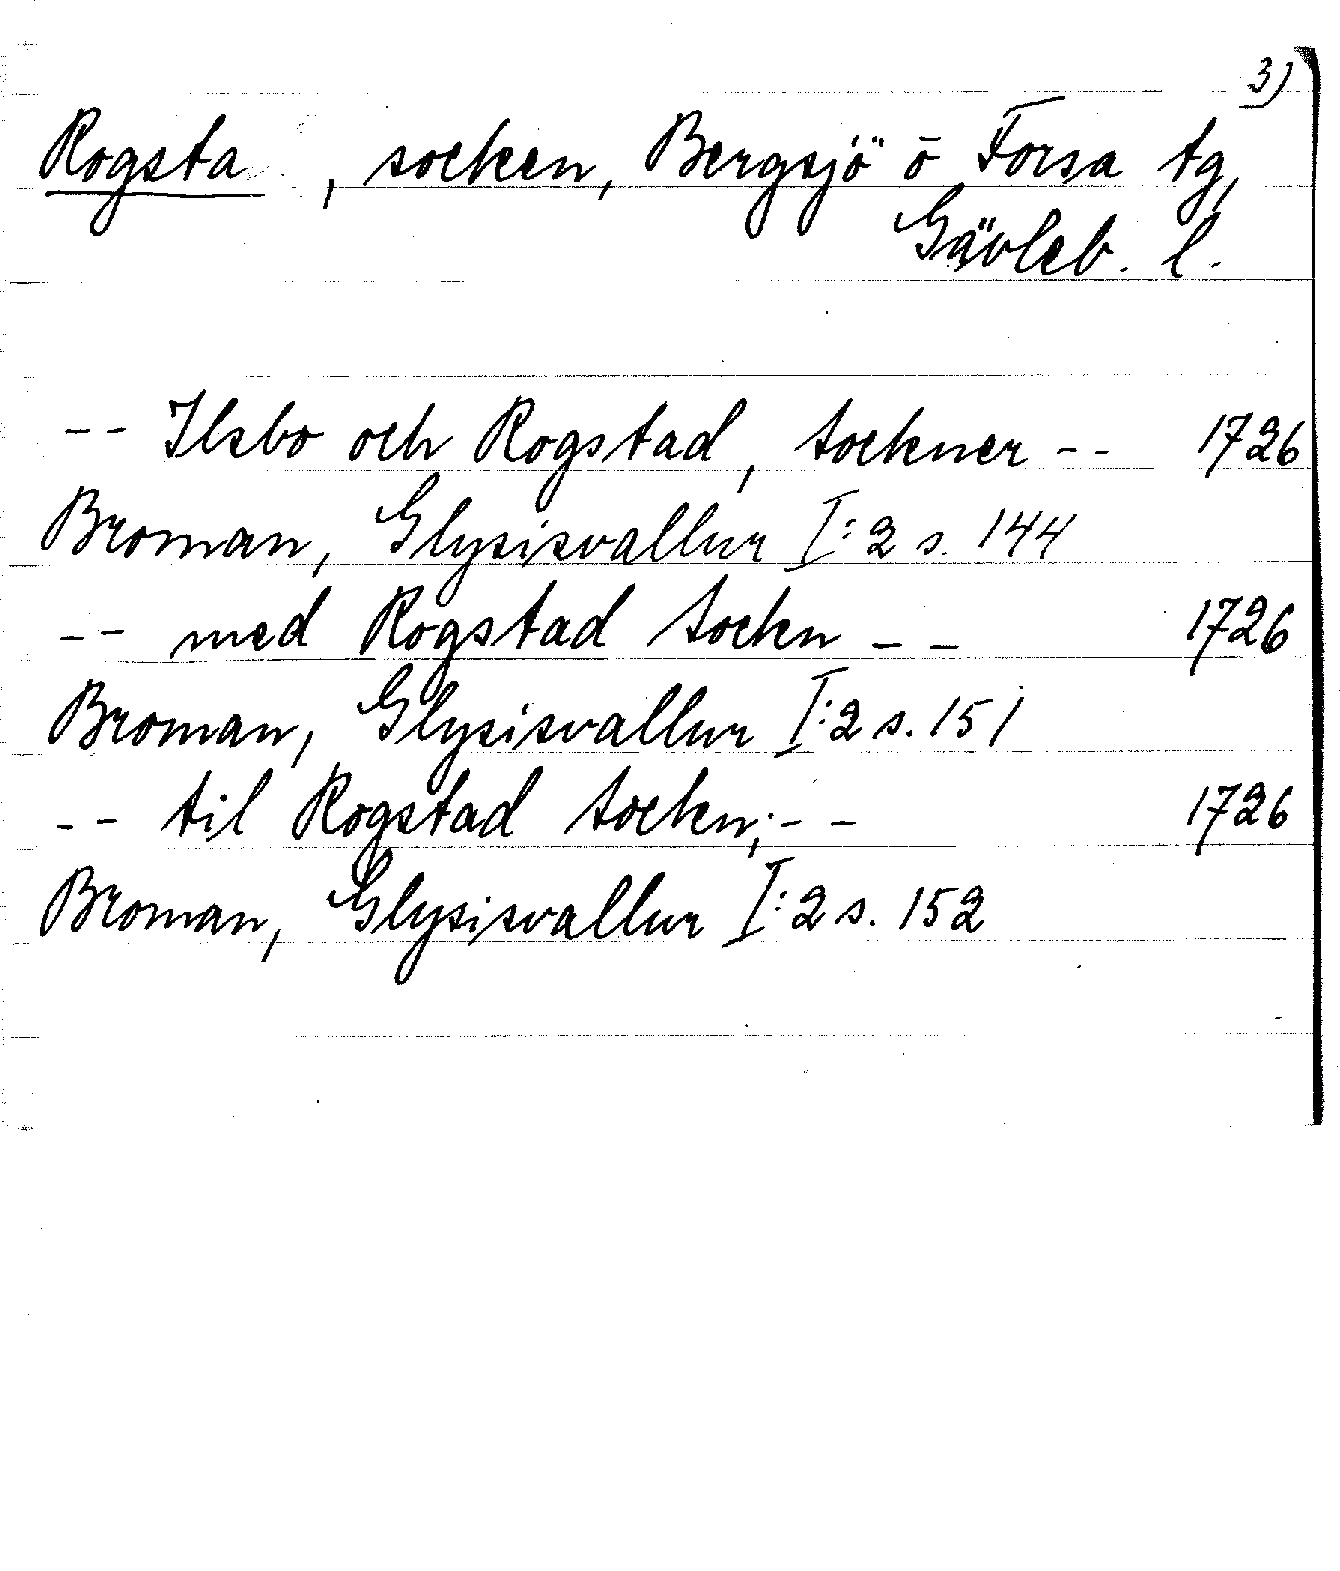 3)
Rogsta, socken, Bergsjö o Forsa tg,
Gävleb. l.
-- Ilsbo och Rogstad, Sockner -- 1726
Broman, Glysisvallur I:2 s. 144
-- med Rogstad Sockn -- 1726
Broman, Glysisvallur I:2 s. 151
-- til Rogstad Sockn; -- 1726
Broman, Glysisvallur I:2 s. 152